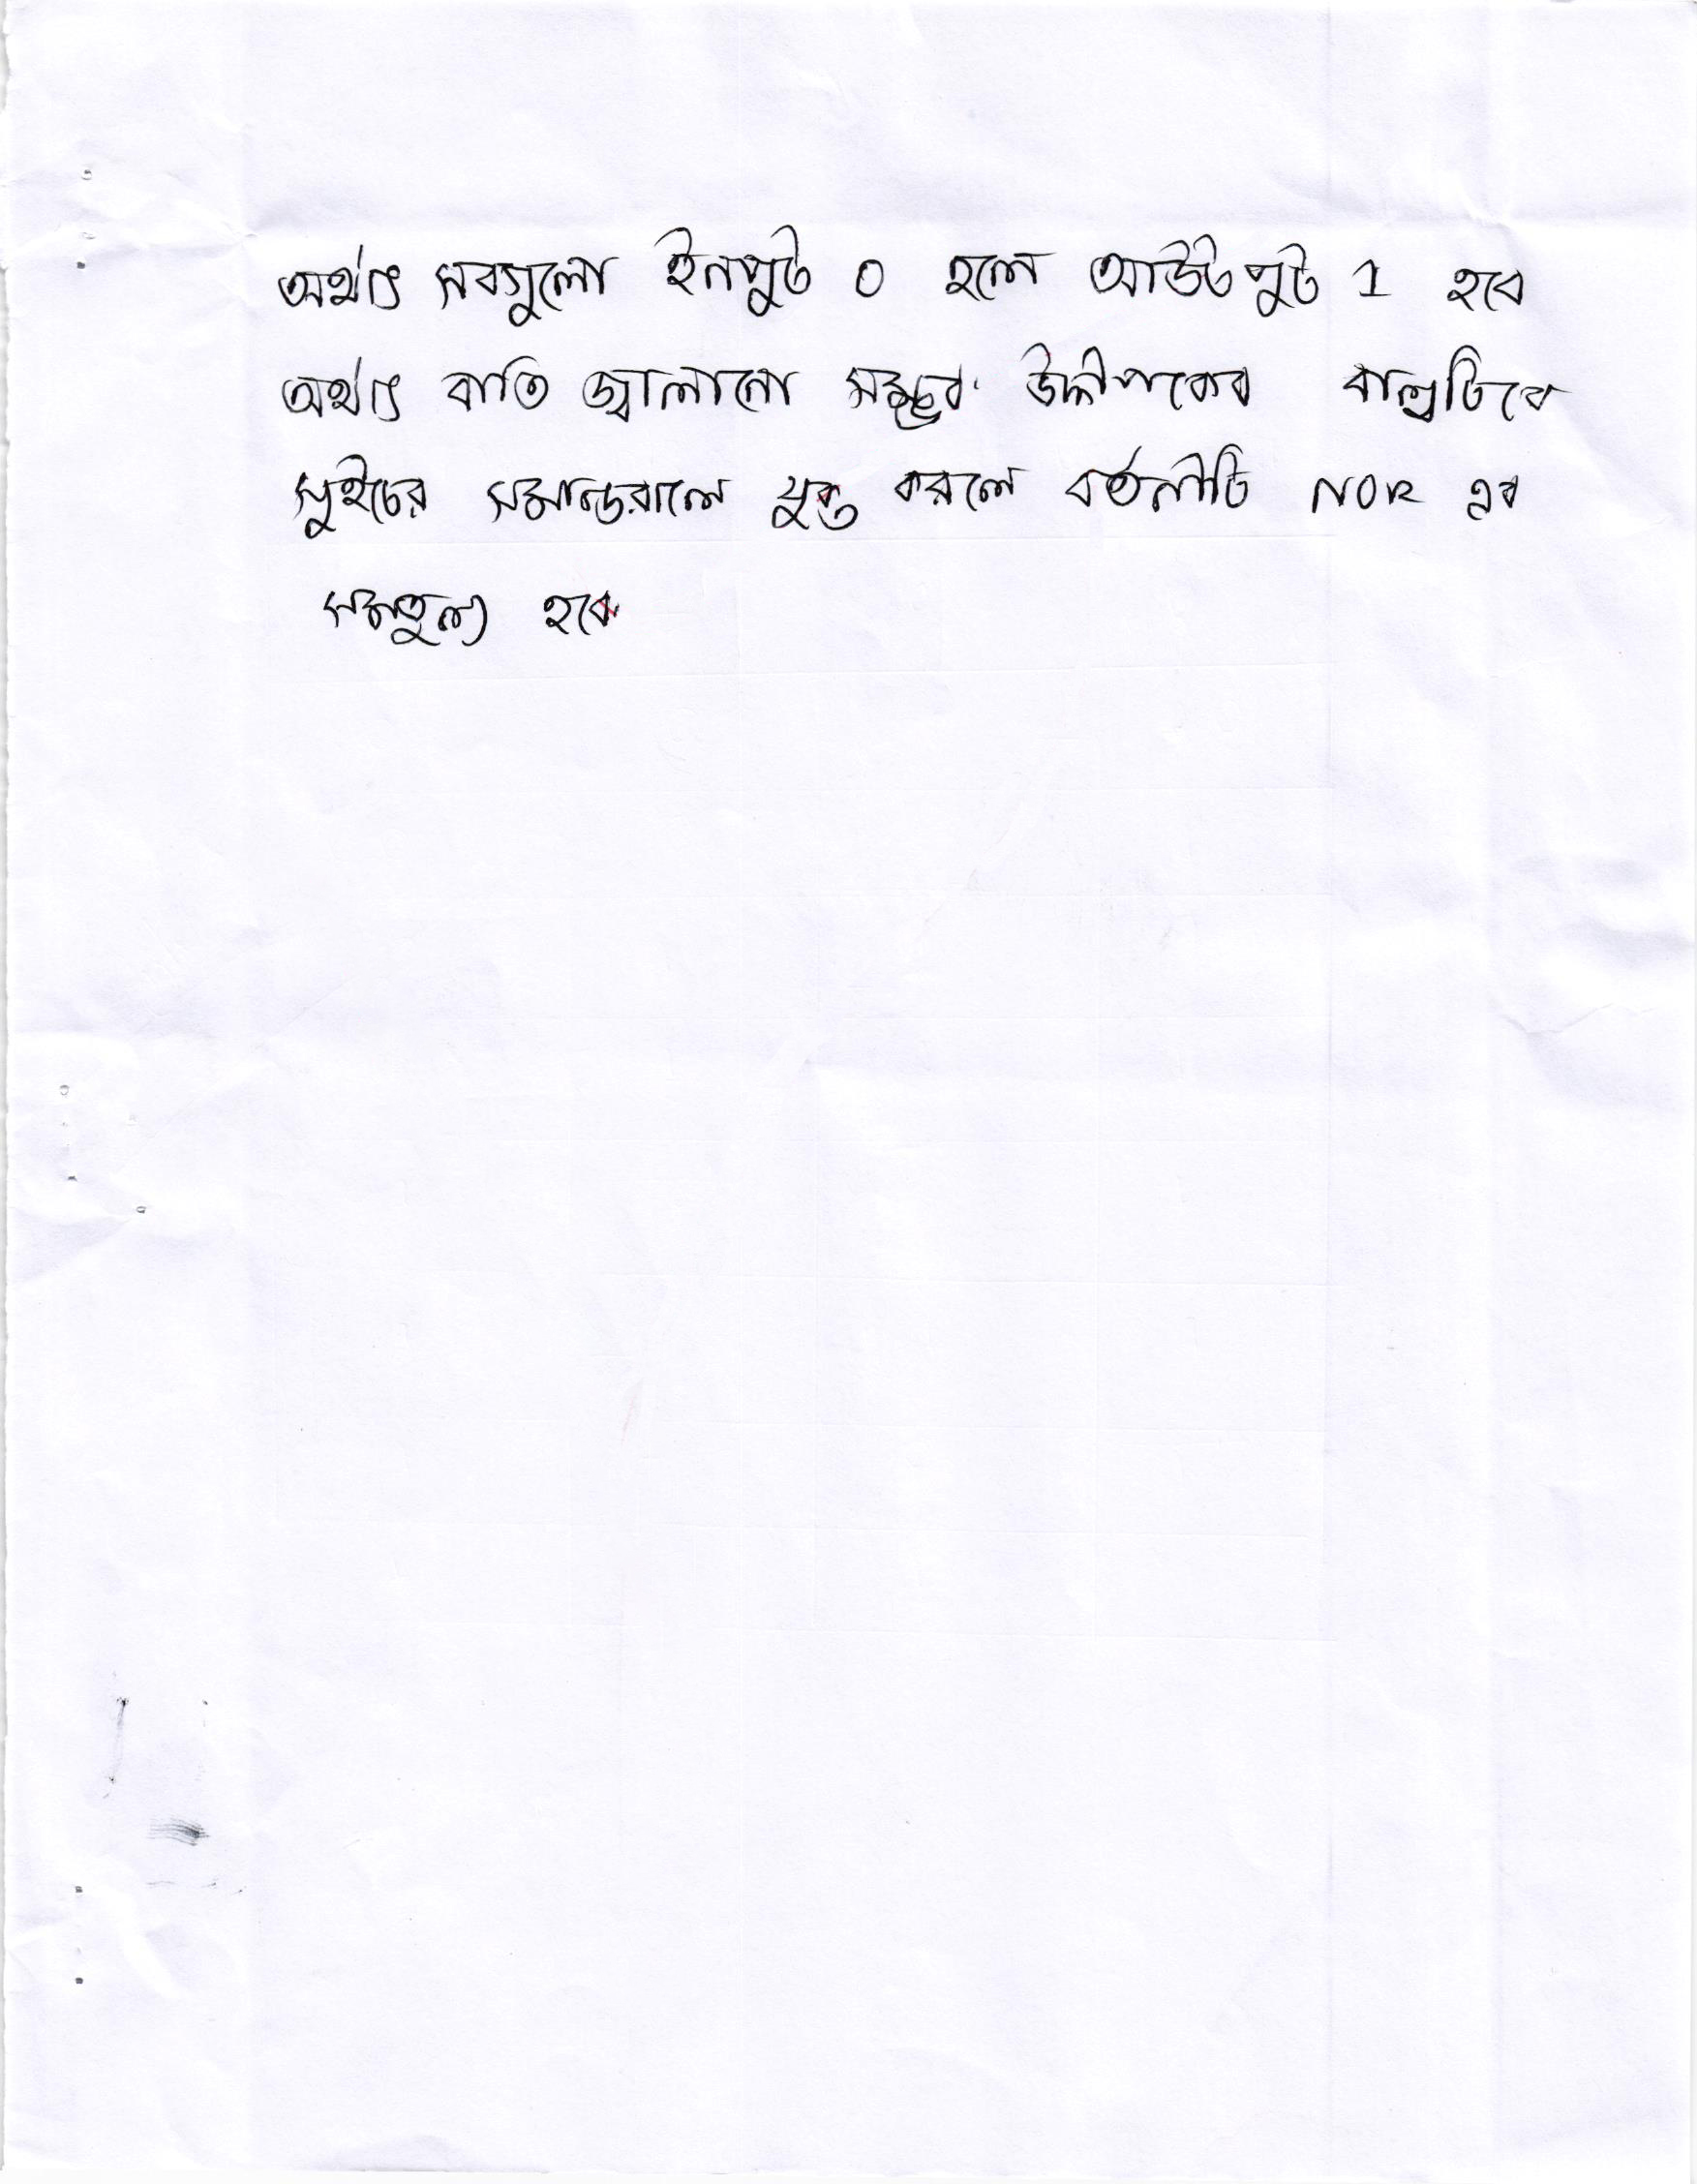 অর্থাৎ সবগুলো ইনপুট 0 হলে আউটপুট 1 হবে
অর্থাৎ বাতি জ্বালানো সম্ভব। উদ্দীপকের বাল্বটিকে
সুইচের সমান্তরালে যুক্ত করলে বর্তনীটি NOR এর
সমতুল্য হবে